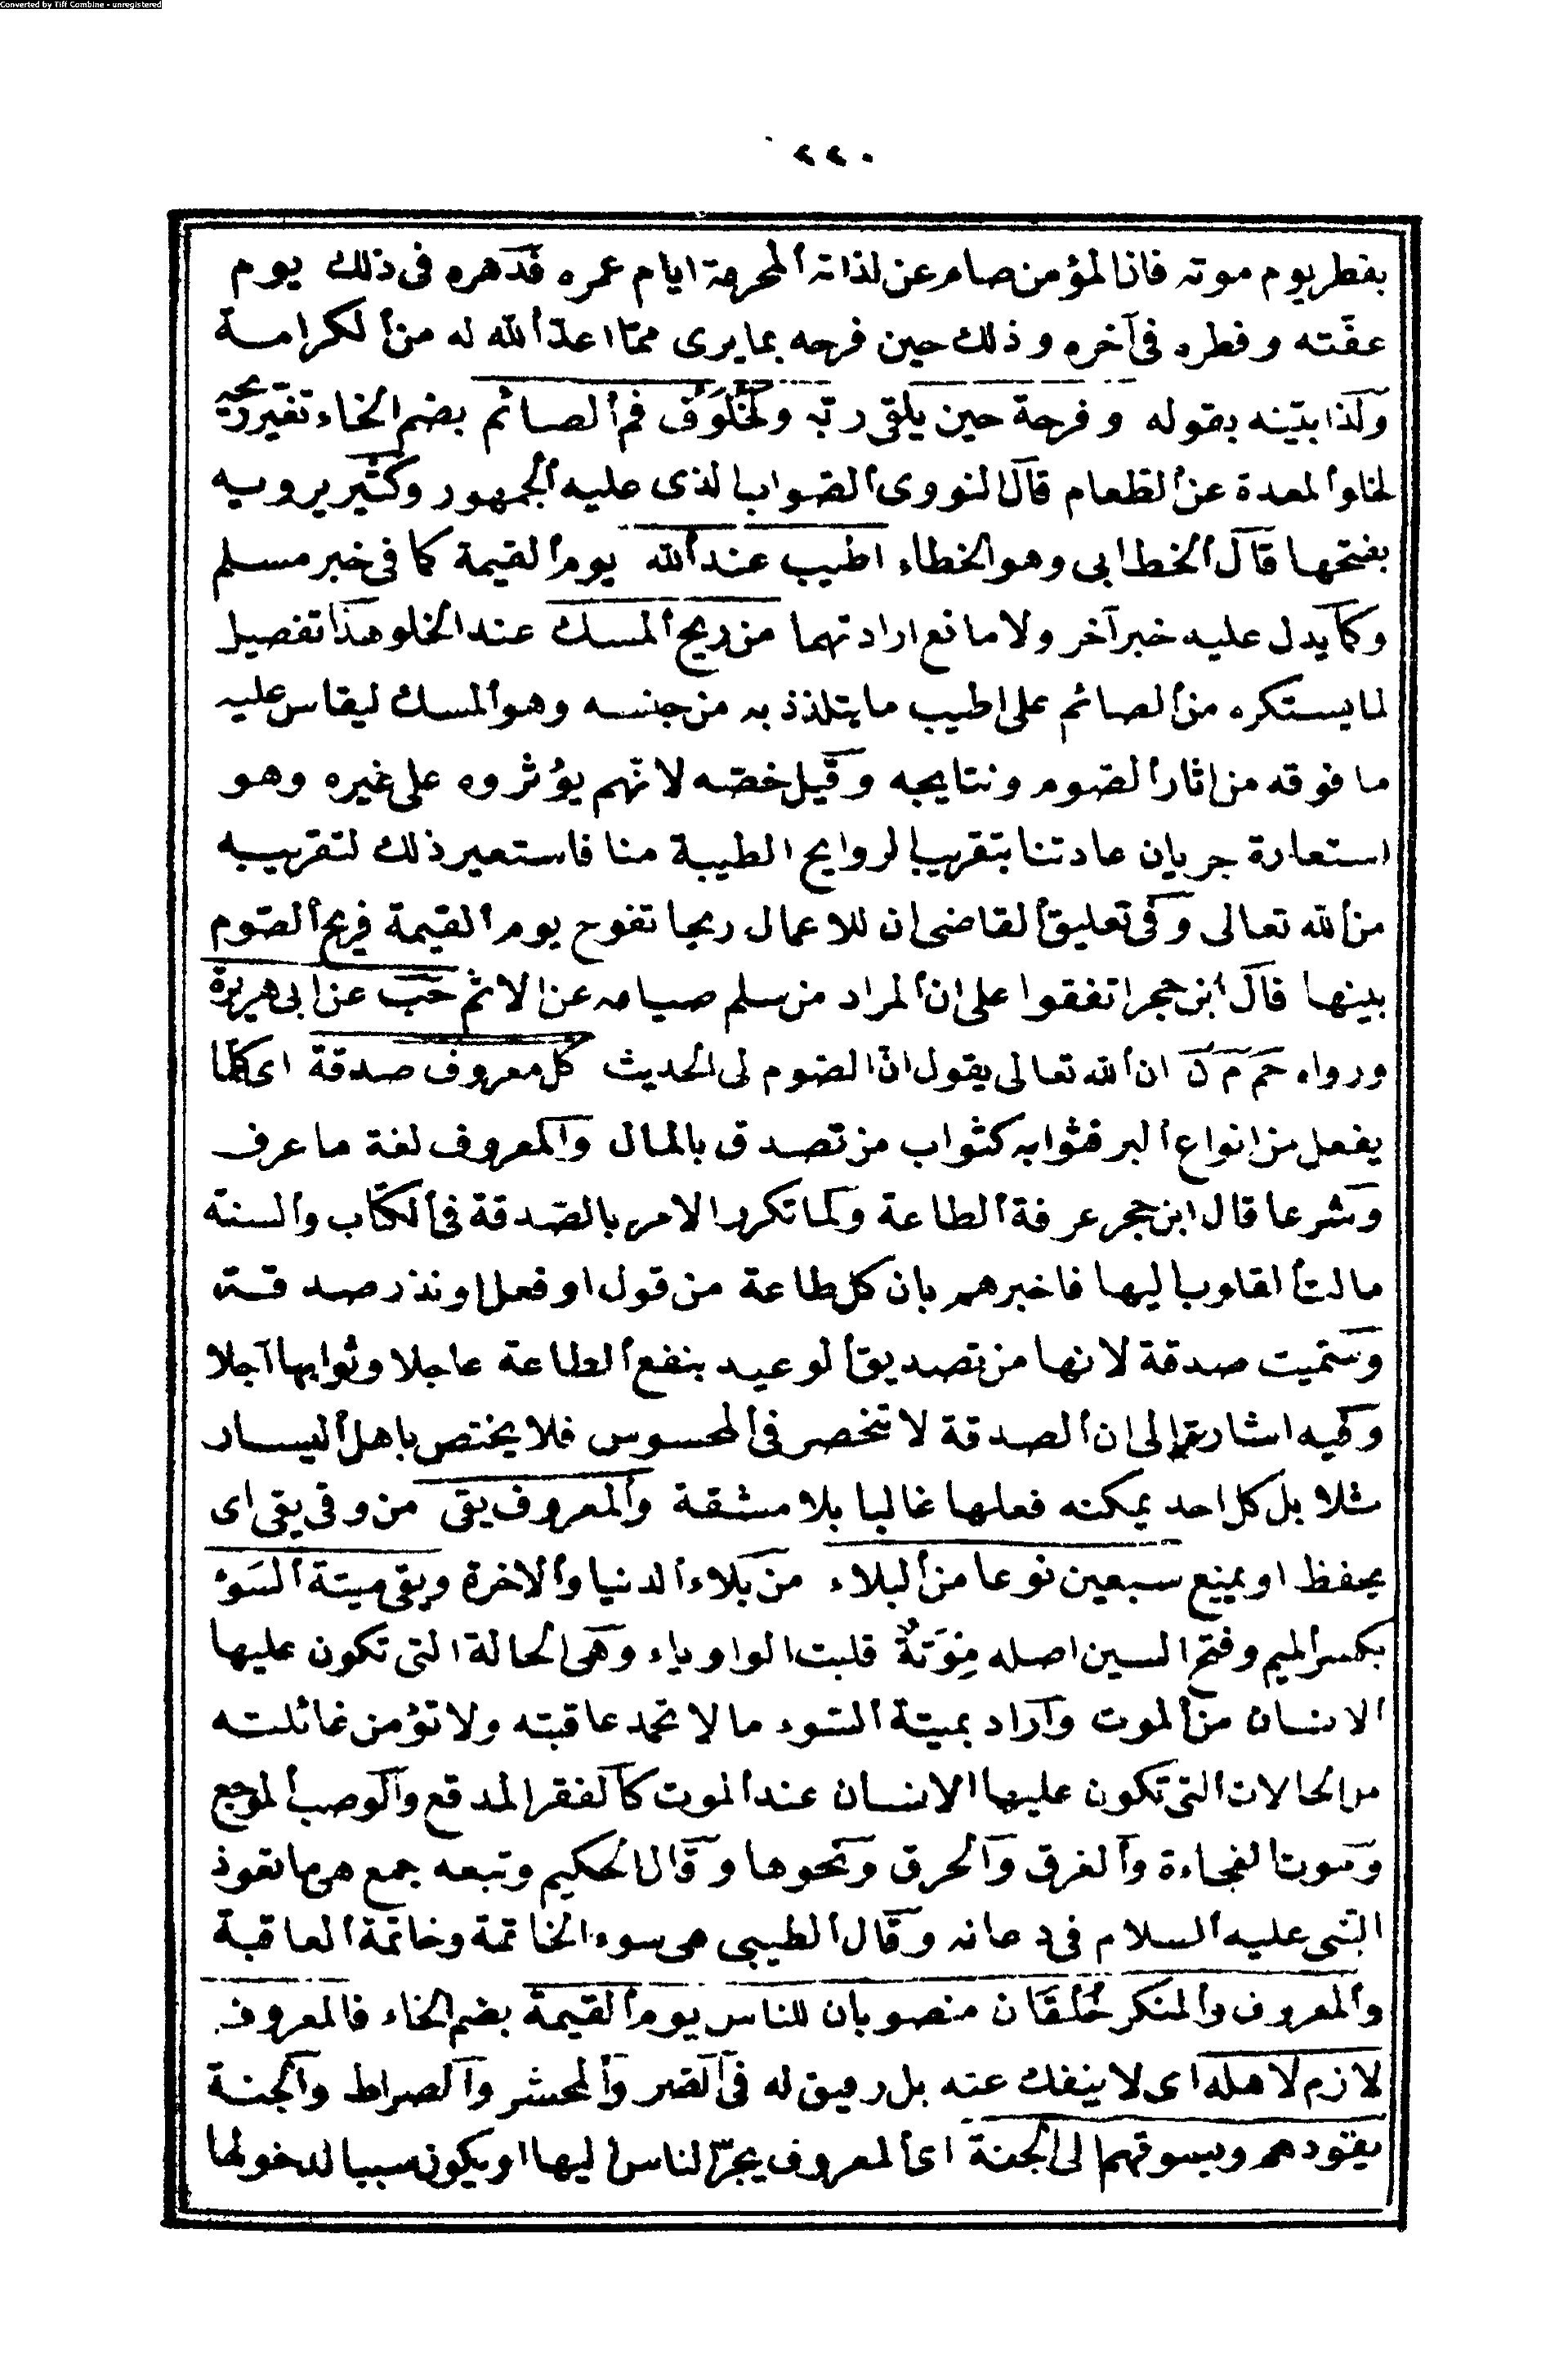 Converted by Tiff Combine - unregistered
٤٤٠
بفطر يوم موته فان المؤمن صام عن لذاته المحرمة ايام عمره فدهره فى ذلك يوم
عفته وفطره فى آخره وذلك حين فرحه بما يرى مما اعد الله له من الكرامة
ولذا بينه بقوله وفرحة حين يلقى ربه ولخُلُوف فم الصائم بضم الخاء تغير ريحه
لخلو المعدة عن الطعام قال النووى الصواب الذى عليه الجمهور وكثير يرويه
بفتحها قال الخطابى وهو الخطاء اطيب عند الله يوم القيمة كما فى خبر مسلم
وكما يدل عليه خبر آخر ولا مانع ارادتهما من ريح المسك عند الخلو هذا تفصيل
لما يستكره من الصائم على اطيب ما يتلذذ به من جنسه وهو المسك ليقاس عليه
ما فوقه من اثار الصوم ونتايجه وقيل خصه لانهم يؤثروه على غيره وهو
استعارة جريان عادتنا بتقريب الروايح الطيبة منا فاستعير ذلك لتقريبه
من الله تعالى وفى تعليق القاضى ان للاعمال ريحا تفوح يوم القيمة فريح الصوم
بينها قال ابن حجر اتفقوا على ان المراد من سلم صيامه عن الاثم حب عن ابى هريرة
ورواه حم م ن ان الله تعالى يقول ان الصوم لى الحديث كل معروف صدقة اى كلما
يفعل من انواع البر فثوابه كثواب من تصدق بالمال والمعروف لغة ما عرف
وشرعا قال ابن حجر عرفة الطاعة ولما تكرر الامر بالصدقة فى الكتاب والسنة
مالت القلوب اليها فاخبرهم بان كل طاعة من قول او فعل او نذر صدقة
وسميت صدقة لانها من تصديق الوعيد بنفع الطاعة عاجلا وثوابها آجلا
وفيه اشارة الى ان الصدقة لا تنحصر فى المحسوس فلا يختص باهل اليسار
مثلا بل كل احد يمكنه فعلها غالبا بلا مشقة والمعروف يقى من وقى يقى اى
يحفظ او يمنع سبعين نوعا من البلاء من بلاء الدنيا والاخرة ويقى ميتة السَوء
بكسر الميم وفتح السين اصله مِوْتَةٌ قلبت الواو ياء وهى الحالة التى تكون عليها
الانسان من الموت واراد بميتة السوء ما لا تحمد عاقبته ولا تؤمن غائلته
من الحالات التى تكون عليها الانسان عند الموت كالفقر المدقع والوصب الموجع
وموت الفجاءة والغرق والحرق ونحوها وقال الحكيم وتبعه جمع هى ما تعوذ
النبى عليه السلام فى دعائه وقال الطيبى هى سوء الخاتمة وخاتمة العاقبة
والمعروف والمنكر خُلُقَان منصوبان للناس يوم القيمة بضم الخاء فالمعروف
لازم لاهله اى لا ينفك عنه بل رفيق له فى القبر والمحشر والصراط والجنة
يقودهم ويسوقهم الى الجنة اى المعروف يجر الناس اليها او يكون سببا لدخولها